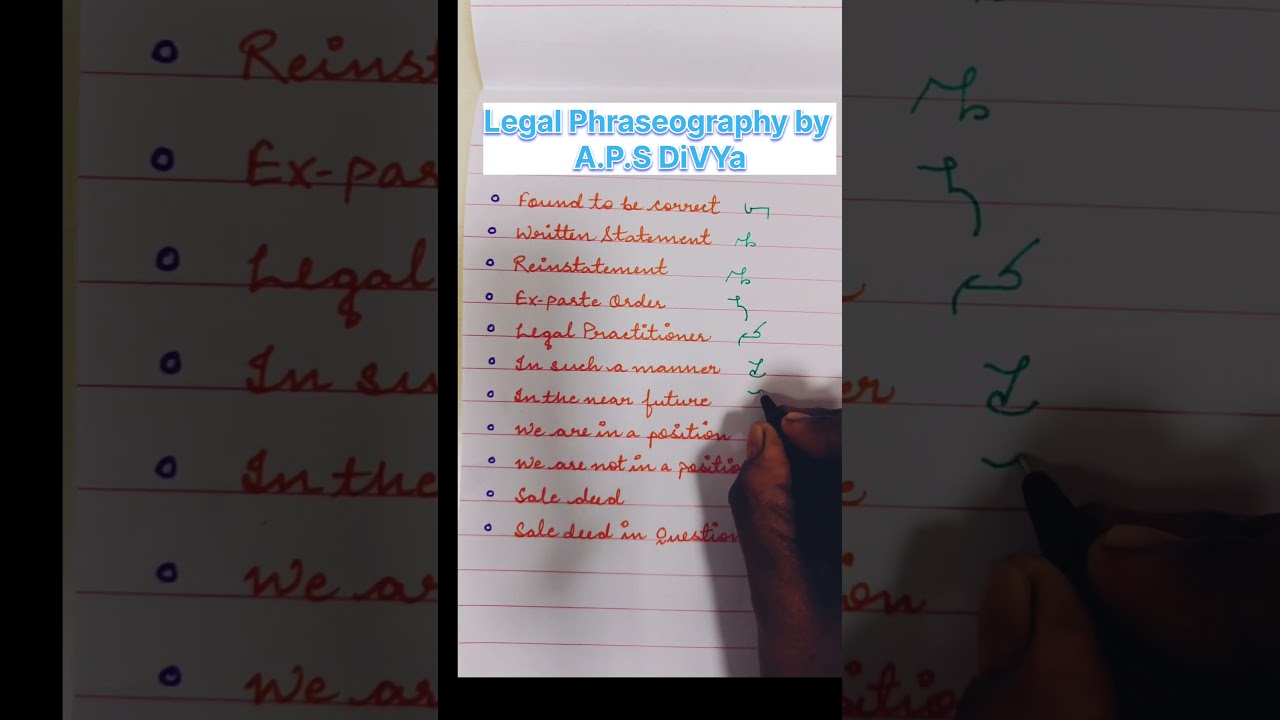 Legal Phraseography by
A.P.S DiVYa
Found to be correct
Written Statement
Reinstatement
Ex-parte Order
Legal Practitioner
In such a manner
In the near future
We are in a position
We are not in a positio
Sale deed
Sale deed in Question